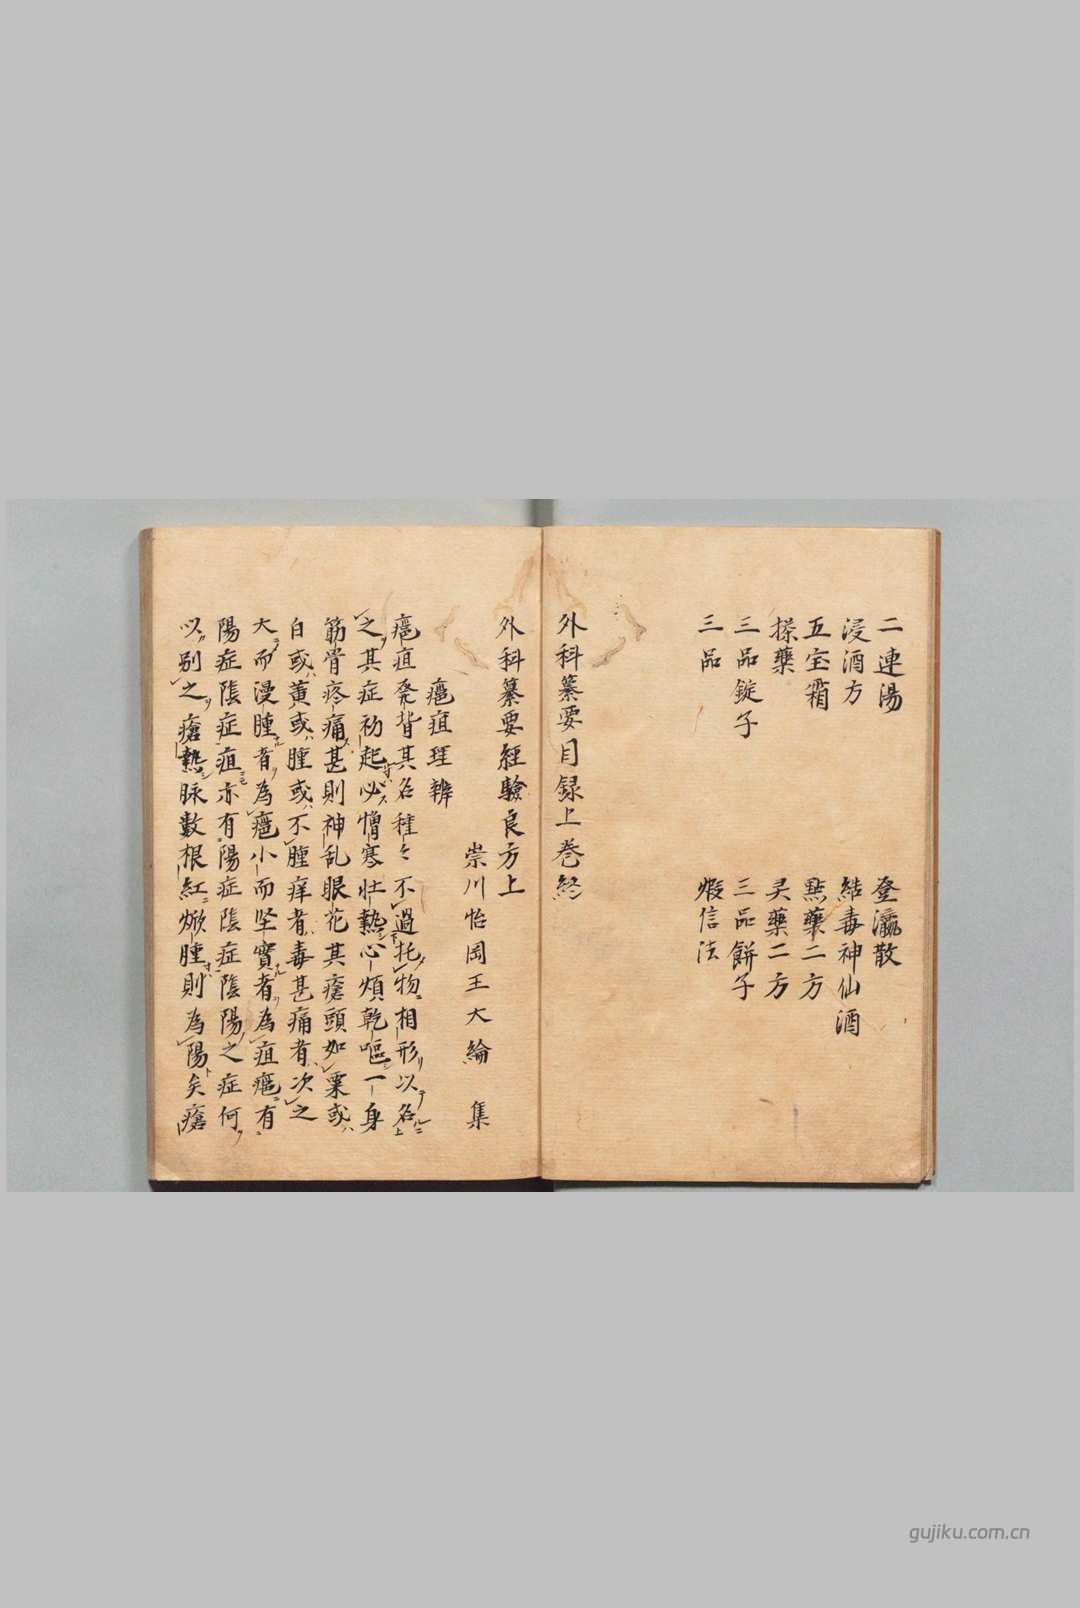 二連湯　登瀛散
浸酒方　結毒神仙酒
五宝霜　點藥二方
搽藥　灵藥二方
三品錠子　三品餅子
三品　煅信法
外科纂要目録上巻終
外科纂要經驗良方上
崇川怡岡王大綸　集
癰疽理辨
癰疽発背其名種々不過托物相形以名
之其症初起必憎寒壮熱心煩乾嘔一身
筋骨疼痛甚則神乱眼花其瘡頭如粟或
白或黄或腫或不腫痒者毒甚痛者次之
大而漫腫者為癰小而坚實者為疽癰有
陽症陰症疽亦有陽症陰症陰陽之症何
以別之瘡熱脉數根紅焮腫則為陽矣瘡
gujiku.com.cn